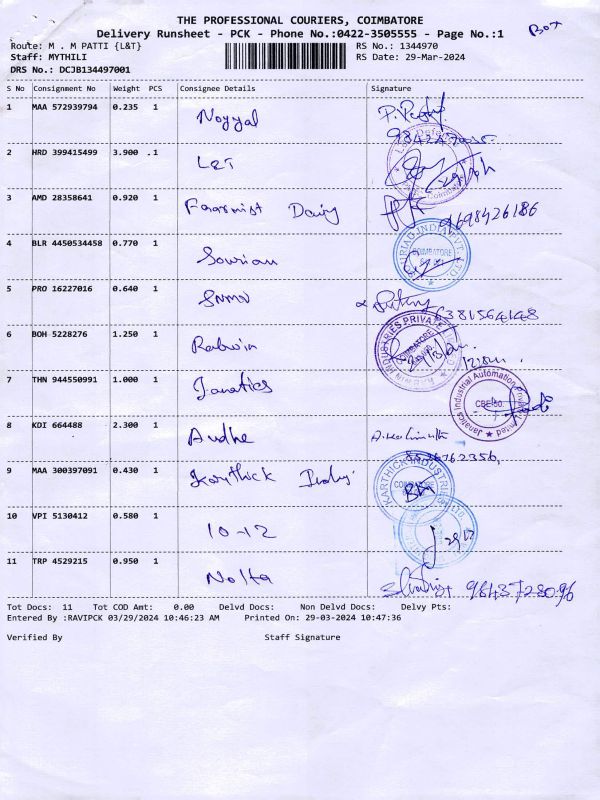 THE PROFESSIONAL COURIERS, COIMBATORE
Delivery Runsheet - PCK - Phone No.:0422-3505555 - Page No.:1
Box
Route: M . M PATTI {L&T}
RS No.: 1344970
Staff: MYTHILI
RS Date: 29-Mar-2024
DRS No.: DCJB134497001
S No Consignment No Weight PCS Consignee Details Signature
1 MAA 572939794 0.235 1 Noyyal
2 HRD 399415499 3.900 .1 L&T
3 AMD 28358641 0.920 1 Dairy 9698426186
4 BLR 4450534458 0.770 1 COIMBATORE
5 PRO 16227016 0.640 1 SNMV 6381564148
6 BOH 5228276 1.250 1
7 THN 944550991 1.000 1 Janatics
Janatics Industrial Automation Private Limited
8 KDI 664488 2.300 1
9 MAA 300397091 0.430 1 Karthick
KARTHICK INDUSTRIES
COIMBATORE
10 VPI 5130412 0.580 1 10-12
11 TRP 4529215 0.950 1 Nolta 9843728096
Tot Docs: 11 Tot COD Amt: 0.00 Delvd Docs: Non Delvd Docs: Delvy Pts:
Entered By :RAVIPCK 03/29/2024 10:46:23 AM Printed On: 29-03-2024 10:47:36
Verified By Staff Signature